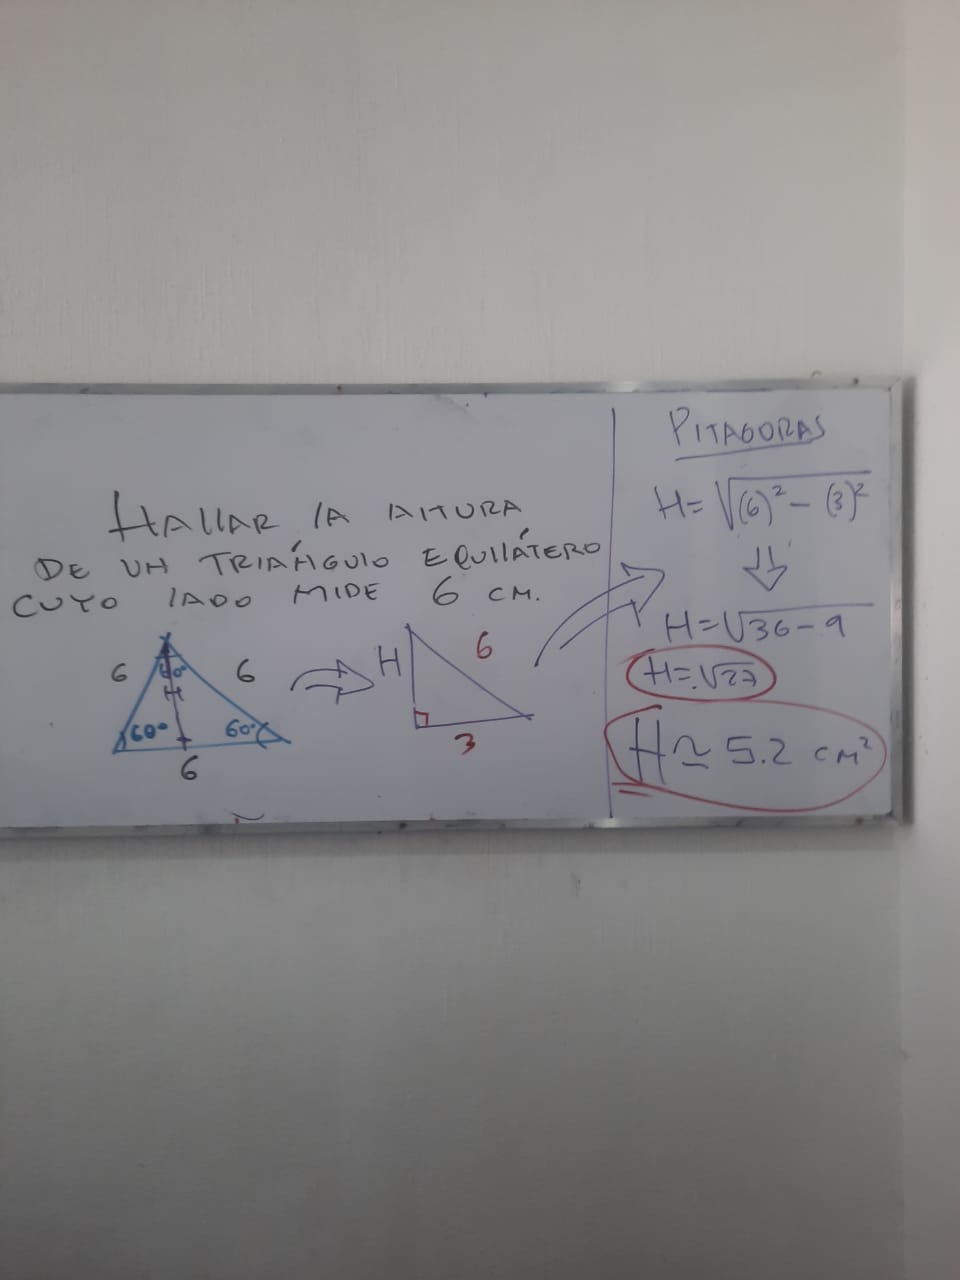 HALLAR LA ALTURA
DE UN TRIÁNGULO EQUILÁTERO
CUYO LADO MIDE 6 CM.
6
60°
H
6
60°
60°
6
H
6
3
PITAGORAS
H=√(6)² - (3)²
H=√36-9
H=√27
H≃ 5.2 cm²